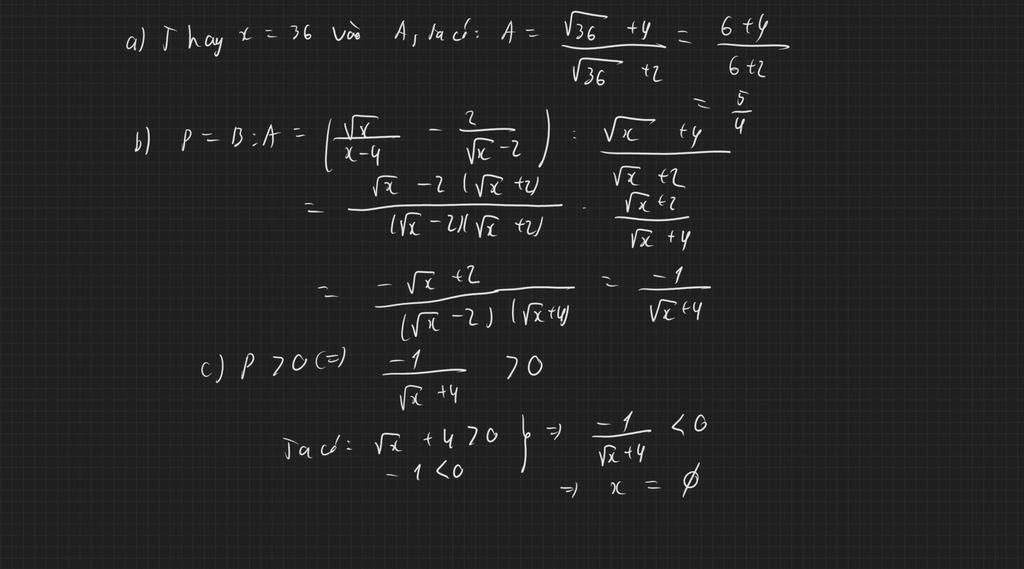 a) Thay x = 36 vào A, ta có: A = (√36 + 4)/(√36 + 2) = (6 + 4)/(6 + 2) = 5/4
b) P = B : A = (√x/(x − 4) − 2/(√x − 2)) : (√x + 4)/(√x + 2)
= (√x − 2(√x + 2))/((√x − 2)(√x + 2)) · (√x + 2)/(√x + 4)
= (−√x + 2)/((√x − 2)(√x + 4)) = −1/(√x + 4)
c) P > 0 (=) −1/(√x + 4) > 0
Ta có: √x + 4 > 0
− 1 < 0 } => −1/(√x + 4) < 0
=> x = ∅